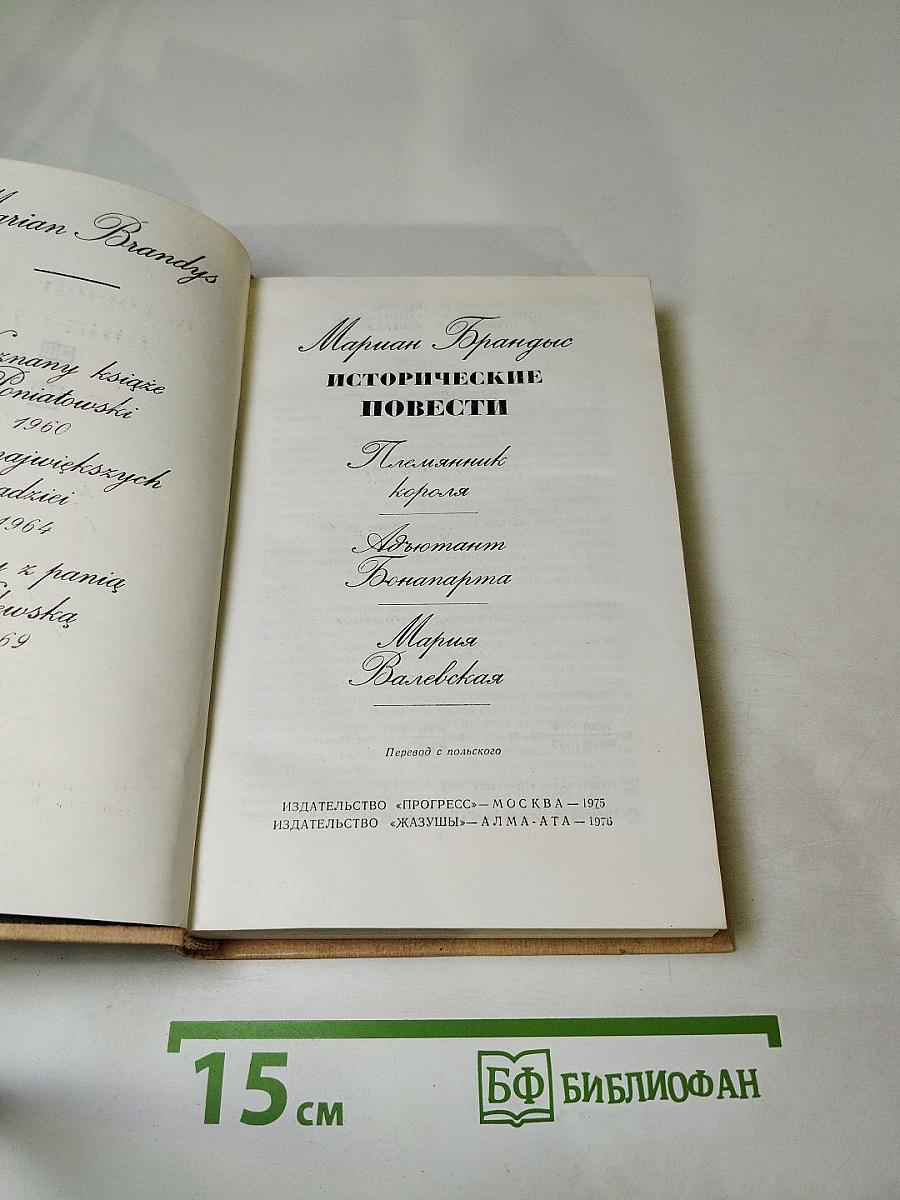 Marian Brandys
znany książe
Poniatowski
1960
największych
nadziei
1964
z panią
1969
Мариан Брандыс
ИСТОРИЧЕСКИЕ
ПОВЕСТИ
Племянник
короля
Адъютант
Бонапарта
Мария
Валевская
Перевод с польского
ИЗДАТЕЛЬСТВО «ПРОГРЕСС» — МОСКВА — 1975
ИЗДАТЕЛЬСТВО «ЖАЗУШЫ» — АЛМА-АТА — 1976
15 см
БФ БИБЛИОФАН